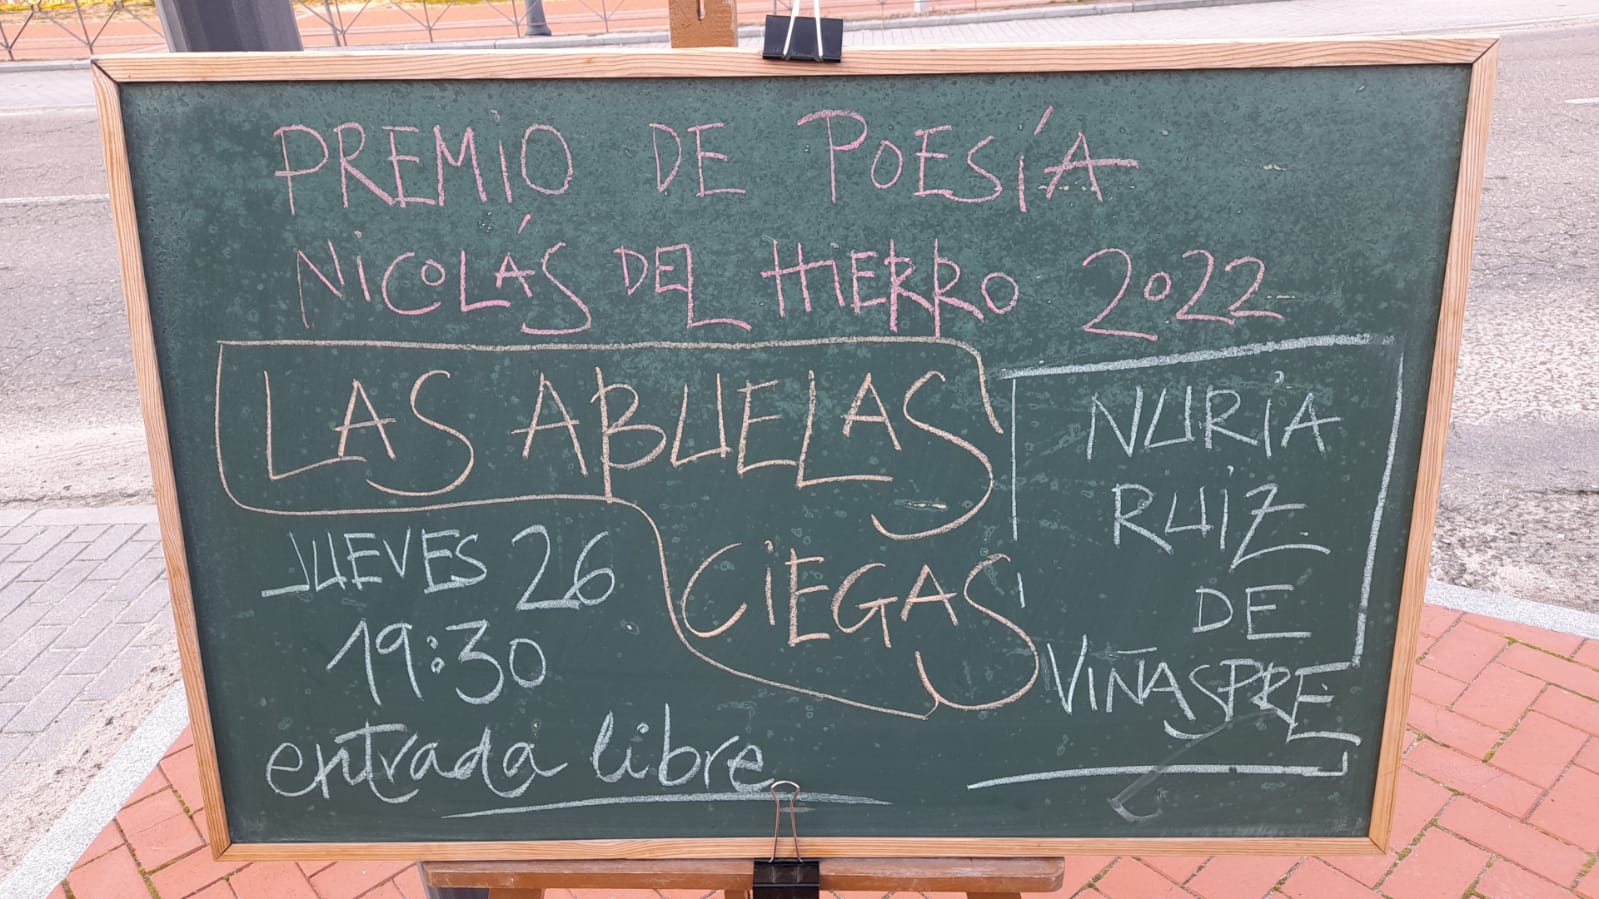 PREMIO DE POESÍA
NICOLÁS DEL HIERRO 2022
LAS ABUELAS
CIEGAS
NURIA
RUIZ
DE
VIÑASPRE
JUEVES 26
19:30
entrada libre